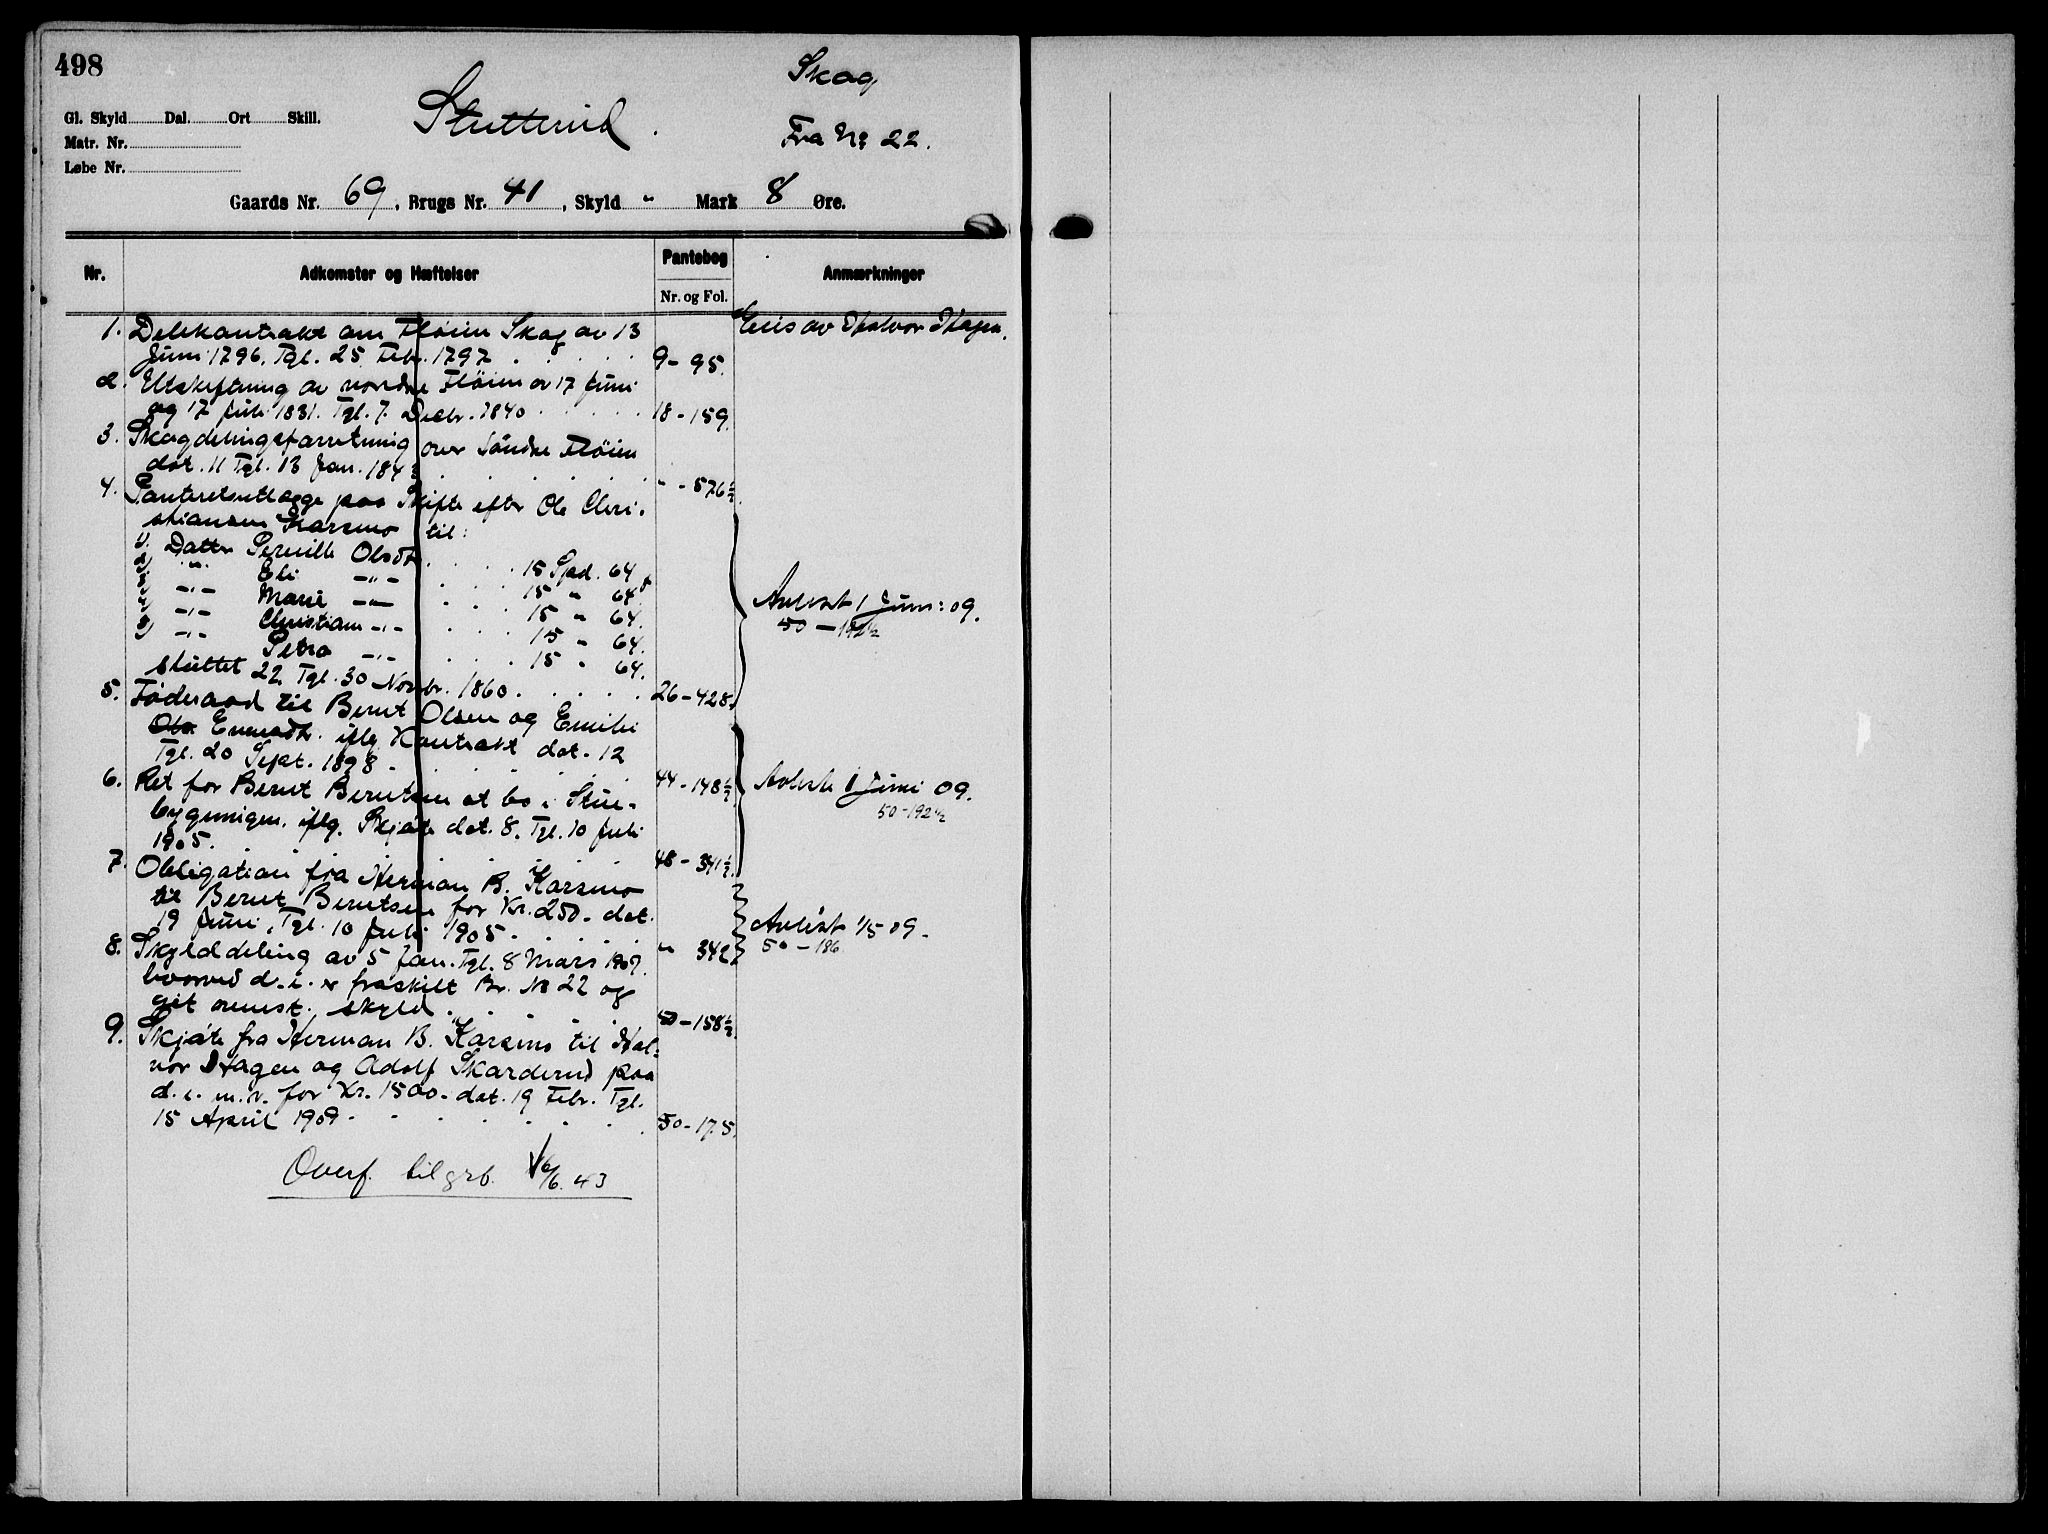 498
Skag
Gl. Skyld Dal. Ort Skill.
Stutterud.
Matr. Nr.
Fra No 22.
Løbe Nr.
Gaards Nr. 69, Brugs Nr. 41, Skyld " Mark 8 Øre.
Nr. Adkomster og Hæftelser Pantebog Nr. og Fol. Anmærkninger
1. Delekontrakt om Fløien Skog av 13 Eies av Halvor Hagen.
Juni 1796. Tgl. 25 Febr. 1797 9 - 95.
2. Utskiftning av nordre Fløien av 17 Juni
og 17 Juli 1831. Tgl. 7. Decbr. 1840 18 - 159.
3. Skogdelingsforretning over Søndre Fløien
dat. 11 Tgl. 13 Jan. 1843 " - 576½.
4. Panteretsutlægge paa Skifte efter Ole Chri-
stiansen Karsmo til:
1) Datter Pernille Olsdtr. 15 Spd. 64
2) " Eli -"- 15 " 64
3) -"- Marie -"- 15 " 64.
4) -"- Christiam -"- 15 " 64.
5) -"- Petra -"- 15 " 64.
sluttet 22 Tgl. 30 Novbr. 1860. 26 - 428.
Avlyst 1 Juni 09.
50 - 192½
5. Føderaad til Bernt Olsen og Emilie
Ols Evensdtr. iflg. Kontrakt dat. 12
Tgl. 20 Sept. 1898. 44 - 148½
6. Ret for Bernt Berntsen at bo i Stue-
bygningen. iflg. Skjøte dat. 8. Tgl. 10 Juli
1905. 48 - 341½.
Avlyst 1 Juni 09.
50 - 192½
7. Obligation fra Herman B. Karsmo
til Bernt Berntsen for Kr. 250. dat.
19 Juni, Tgl. 10 Juli 1905. " 342
Avlyst 1/5 09.
50 - 186.
8. Skylddeling av 5 Jan. Tgl. 8 Mars 1909.
hvorved d. e. er fraskilt Br. No 22 og
git ovenst. skyld. 50 - 158½
9. Skjøte fra Herman B. Karsmo til Hal-
vor Hagen og Adolf Skarderud paa
d. e. m. v. for Kr. 1500. dat. 19 Febr. Tgl.
15 April 1909. 50 - 175.
Overf. til grb. 16/6. 43